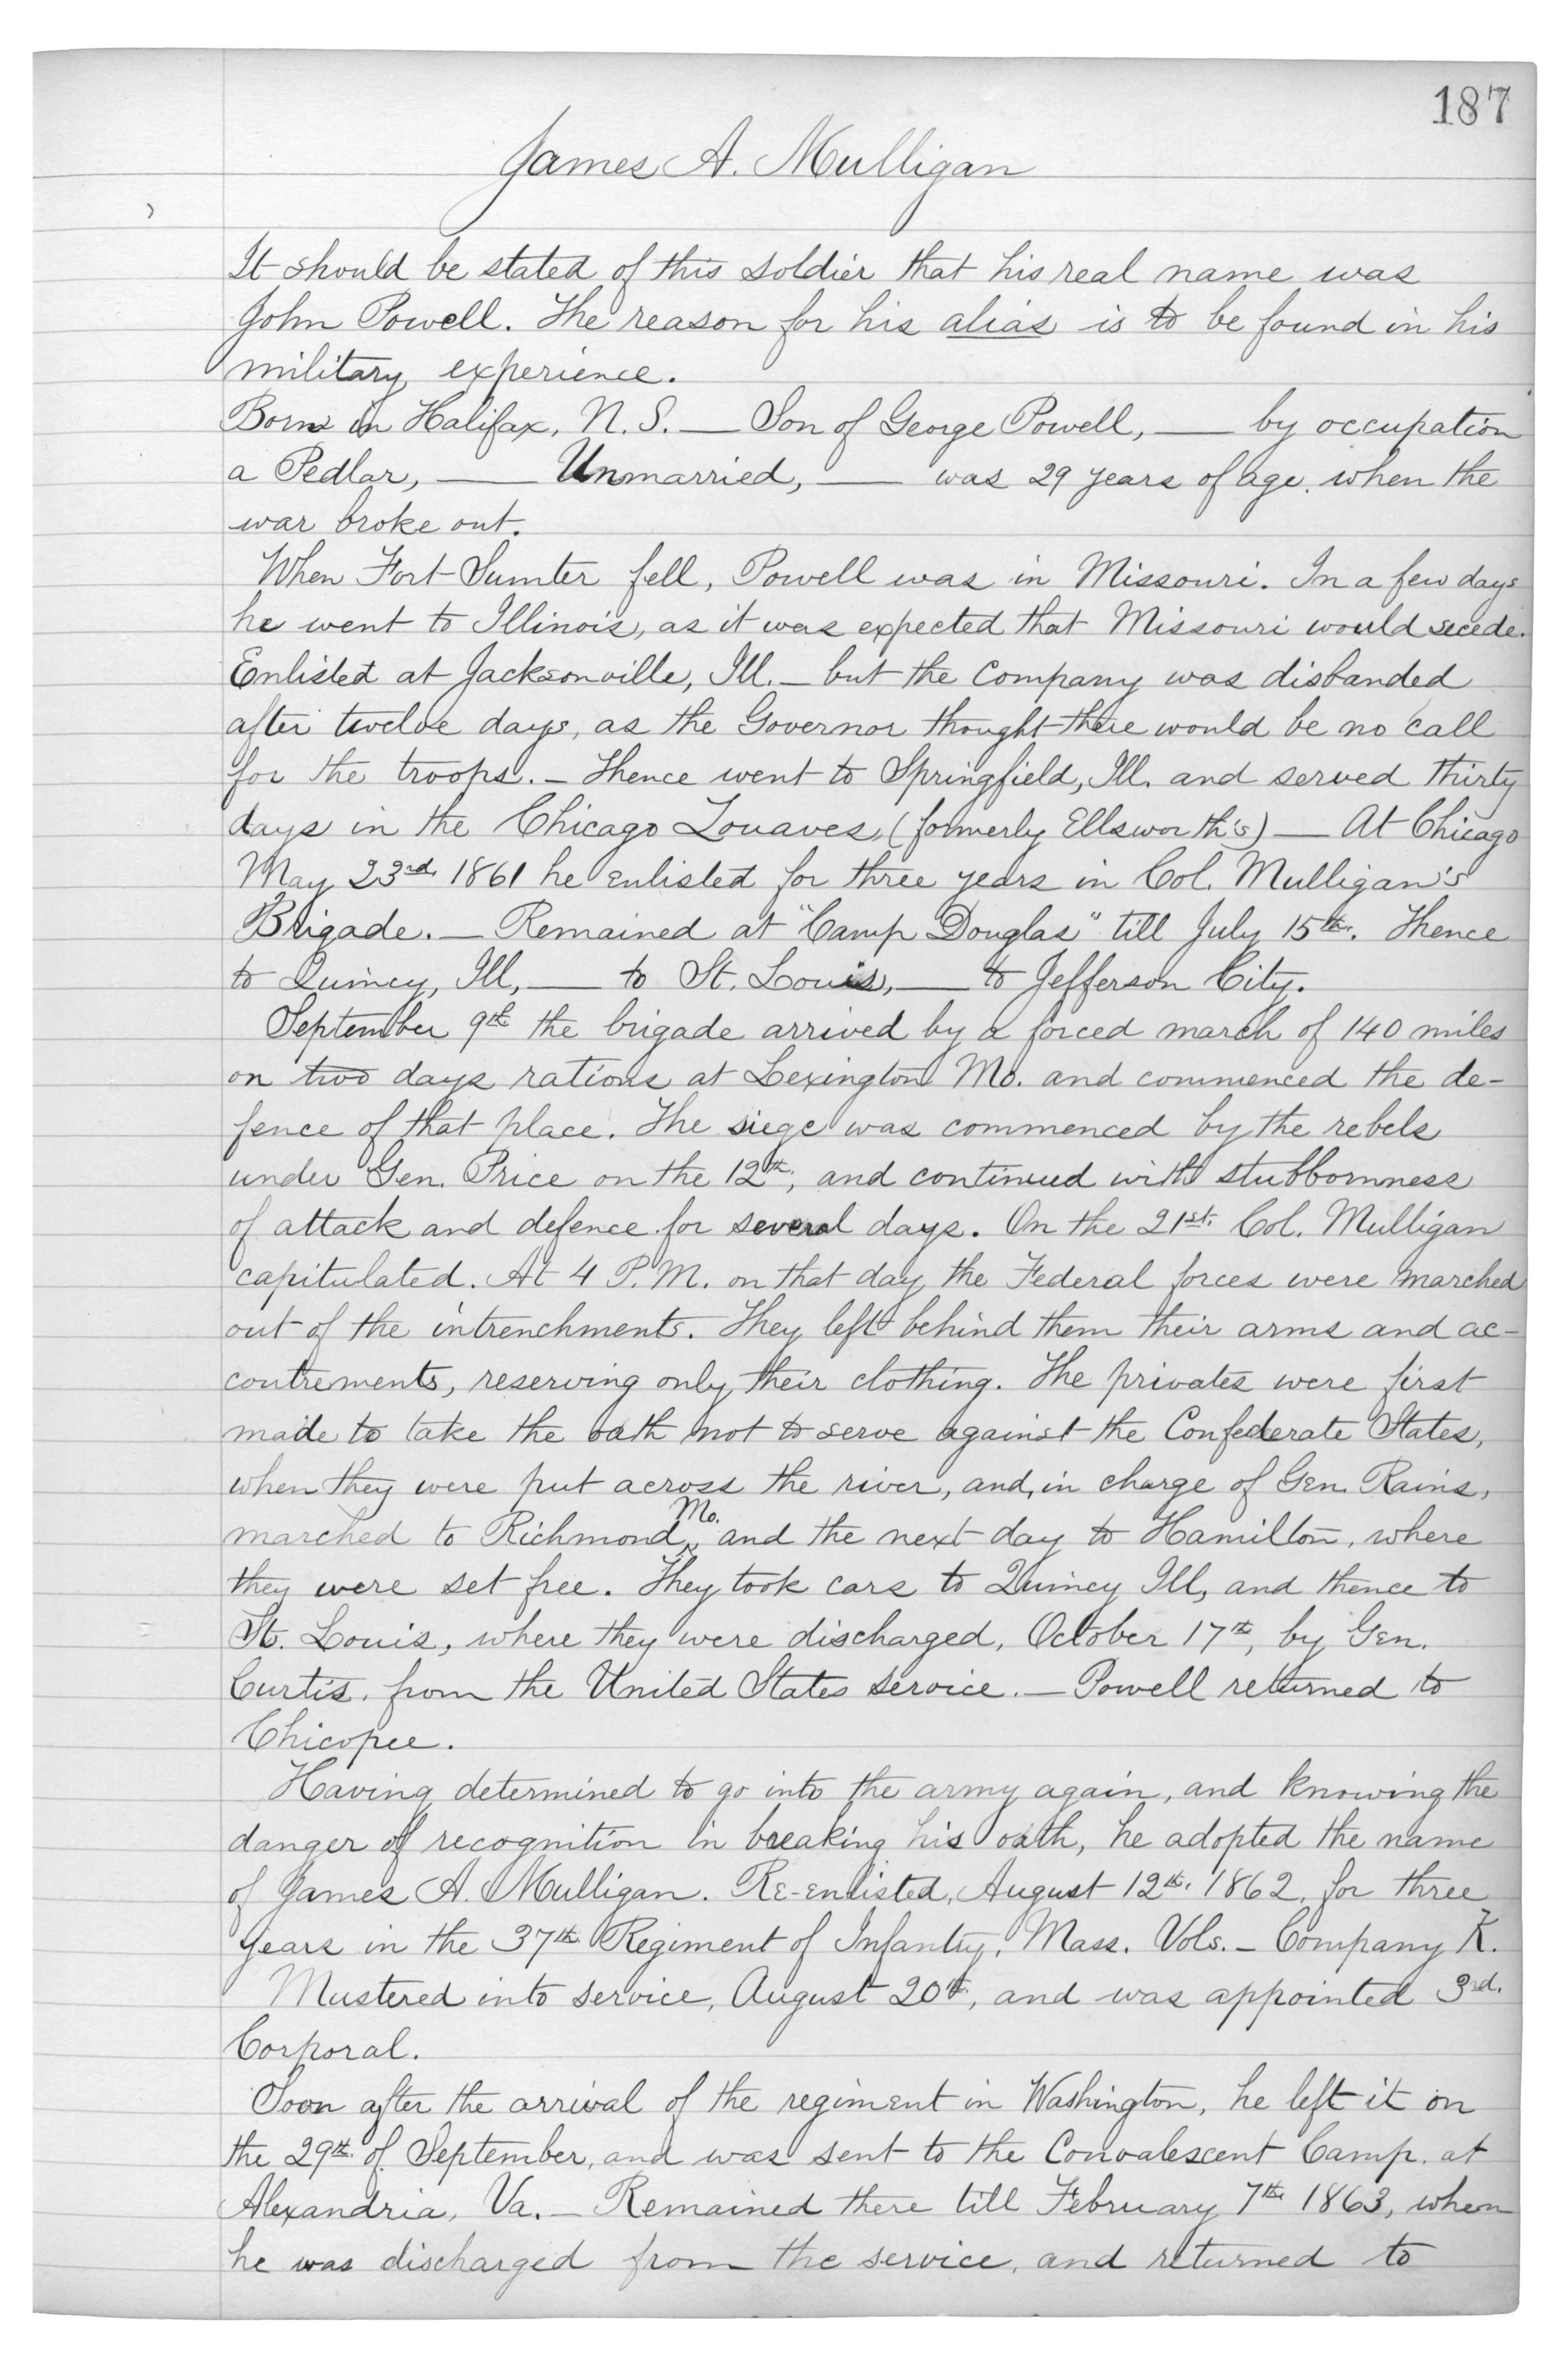 187
James A. Mulligan
It should be stated of this soldier that his real name was
John Powell. The reason for his alias is to be found in his
military experience.
Born in Halifax, N.S. — Son of George Powell, — by occupation
a Pedlar, — Unmarried, — was 29 years of age when the
war broke out.
When Fort Sumter fell, Powell was in Missouri. In a few days
he went to Illinois, as it was expected that Missouri would secede.
Enlisted at Jacksonville, Ill. — but the company was disbanded
after twelve days, as the Governor thought there would be no call
for the troops. — Thence went to Springfield, Ill. and served thirty
days in the Chicago Zouaves, (formerly Ellsworth's) — At Chicago
May 23rd. 1861 he enlisted for three years in Col. Mulligan's
Brigade. — Remained at "Camp Douglas" till July 15th. Thence
to Quincy, Ill, — to St. Louis, — to Jefferson City.
September 9th the brigade arrived by a forced march of 140 miles
on two days rations at Lexington Mo. and commenced the de-
fence of that place. The siege was commenced by the rebels
under Gen. Price on the 12th, and continued with stubbornness
of attack and defence for several days. On the 21st. Col. Mulligan
capitulated. At 4 P.M. on that day the Federal forces were marched
out of the intrenchments. They left behind them their arms and ac-
coutrements, reserving only their clothing. The privates were first
made to take the oath not to serve against the Confederate States,
when they were put across the river, and, in charge of Gen. Rains,
marched to Richmond, Mo. and the next day to Hamilton, where
they were set free. They took cars to Quincy Ill, and thence to
St. Louis, where they were discharged, October 17th, by Gen.
Curtis, from the United States service. — Powell returned to
Chicopee.
Having determined to go into the army again, and knowing the
danger of recognition in breaking his oath, he adopted the name
of James A. Mulligan. Re-enlisted, August 12th. 1862, for three
years in the 37th Regiment of Infantry, Mass. Vols. — Company K.
Mustered into service, August 20th, and was appointed 3rd.
Corporal.
Soon after the arrival of the regiment in Washington, he left it on
the 29th of September, and was sent to the Convalescent Camp, at
Alexandria, Va. — Remained there till February 7th 1863, when
he was discharged from the service, and returned to